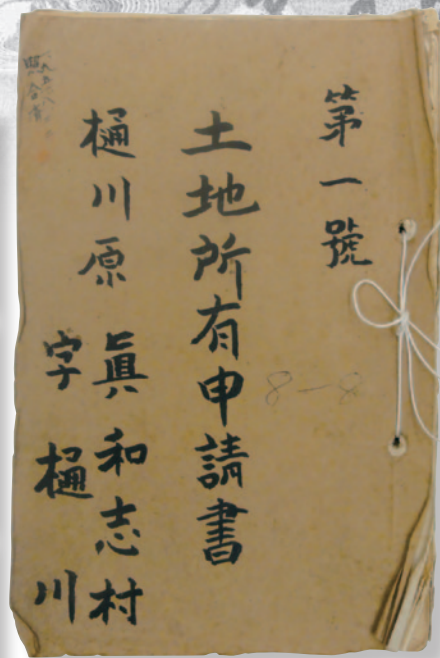 第一號
8-8
土地所有申請書
樋川原 眞和志村
字樋川